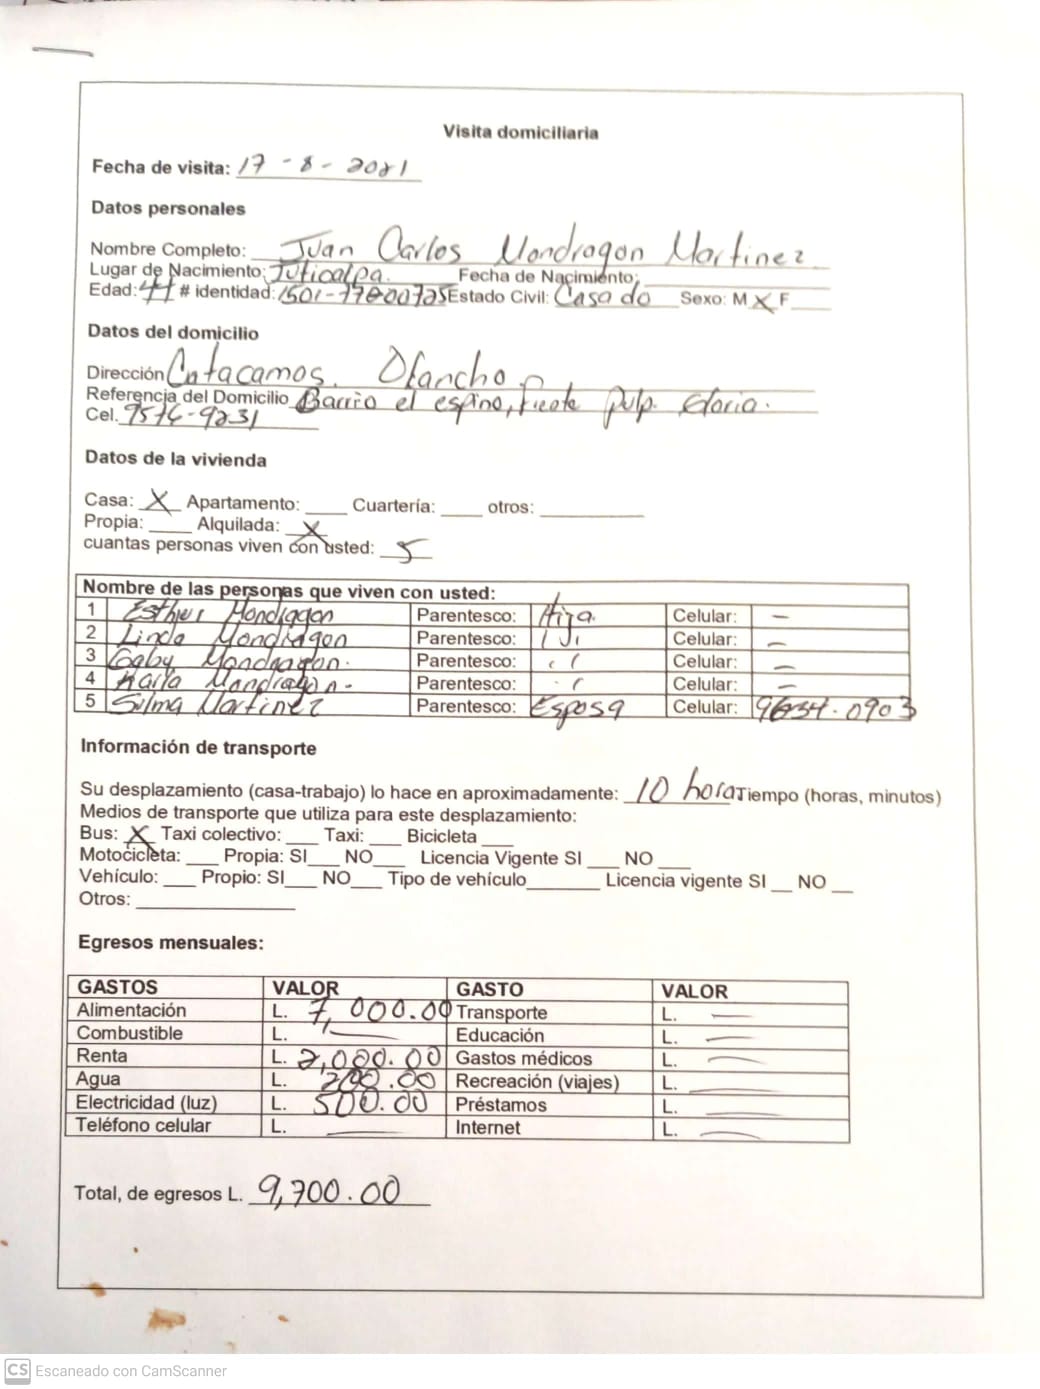 Visita domiciliaria
Fecha de visita: 17 - 8 - 2021
Datos personales
Nombre Completo: Juan Carlos Mondragon Martinez
Lugar de Nacimiento: Juticalpa. Fecha de Nacimiento:
Edad: 44 # identidad: Estado Civil: Casado Sexo: M X F
Datos del domicilio
Dirección Catacamos. Olancho
Referencia del Domicilio Barrio el espino, frente pulp. Gloria.
Cel. 9576-9231
Datos de la vivienda
Casa: X Apartamento: ____ Cuartería: ____ otros: ____
Propia: ____ Alquilada: X
cuantas personas viven con usted: 5
Nombre de las personas que viven con usted:
1 Esther Mondragon Parentesco: Hija. Celular: —
2 Linda Mondragon Parentesco: Celular: —
3 Gaby Mondragon. Parentesco: " Celular: —
4 Karla Mondragon. Parentesco: " Celular: —
5 Suma Martinez Parentesco: Esposa Celular: 9634-0903
Información de transporte
Su desplazamiento (casa-trabajo) lo hace en aproximadamente: 10 hora Tiempo (horas, minutos)
Medios de transporte que utiliza para este desplazamiento:
Bus: X Taxi colectivo: ___ Taxi: ___ Bicicleta ___
Motocicleta: ___ Propia: SI___ NO___ Licencia Vigente SI ___ NO ___
Vehículo: ___ Propio: SI___ NO___ Tipo de vehículo_______ Licencia vigente SI __ NO __
Otros: ____
Egresos mensuales:
GASTOS VALOR GASTO VALOR
Alimentación L. 7,000.00 Transporte L. —
Combustible L. — Educación L. —
Renta L. 2,000.00 Gastos médicos L. —
Agua L. 200.00 Recreación (viajes) L. —
Electricidad (luz) L. 500.00 Préstamos L. —
Teléfono celular L. — Internet L. —
Total, de egresos L. 9,700.00
CS Escaneado con CamScanner